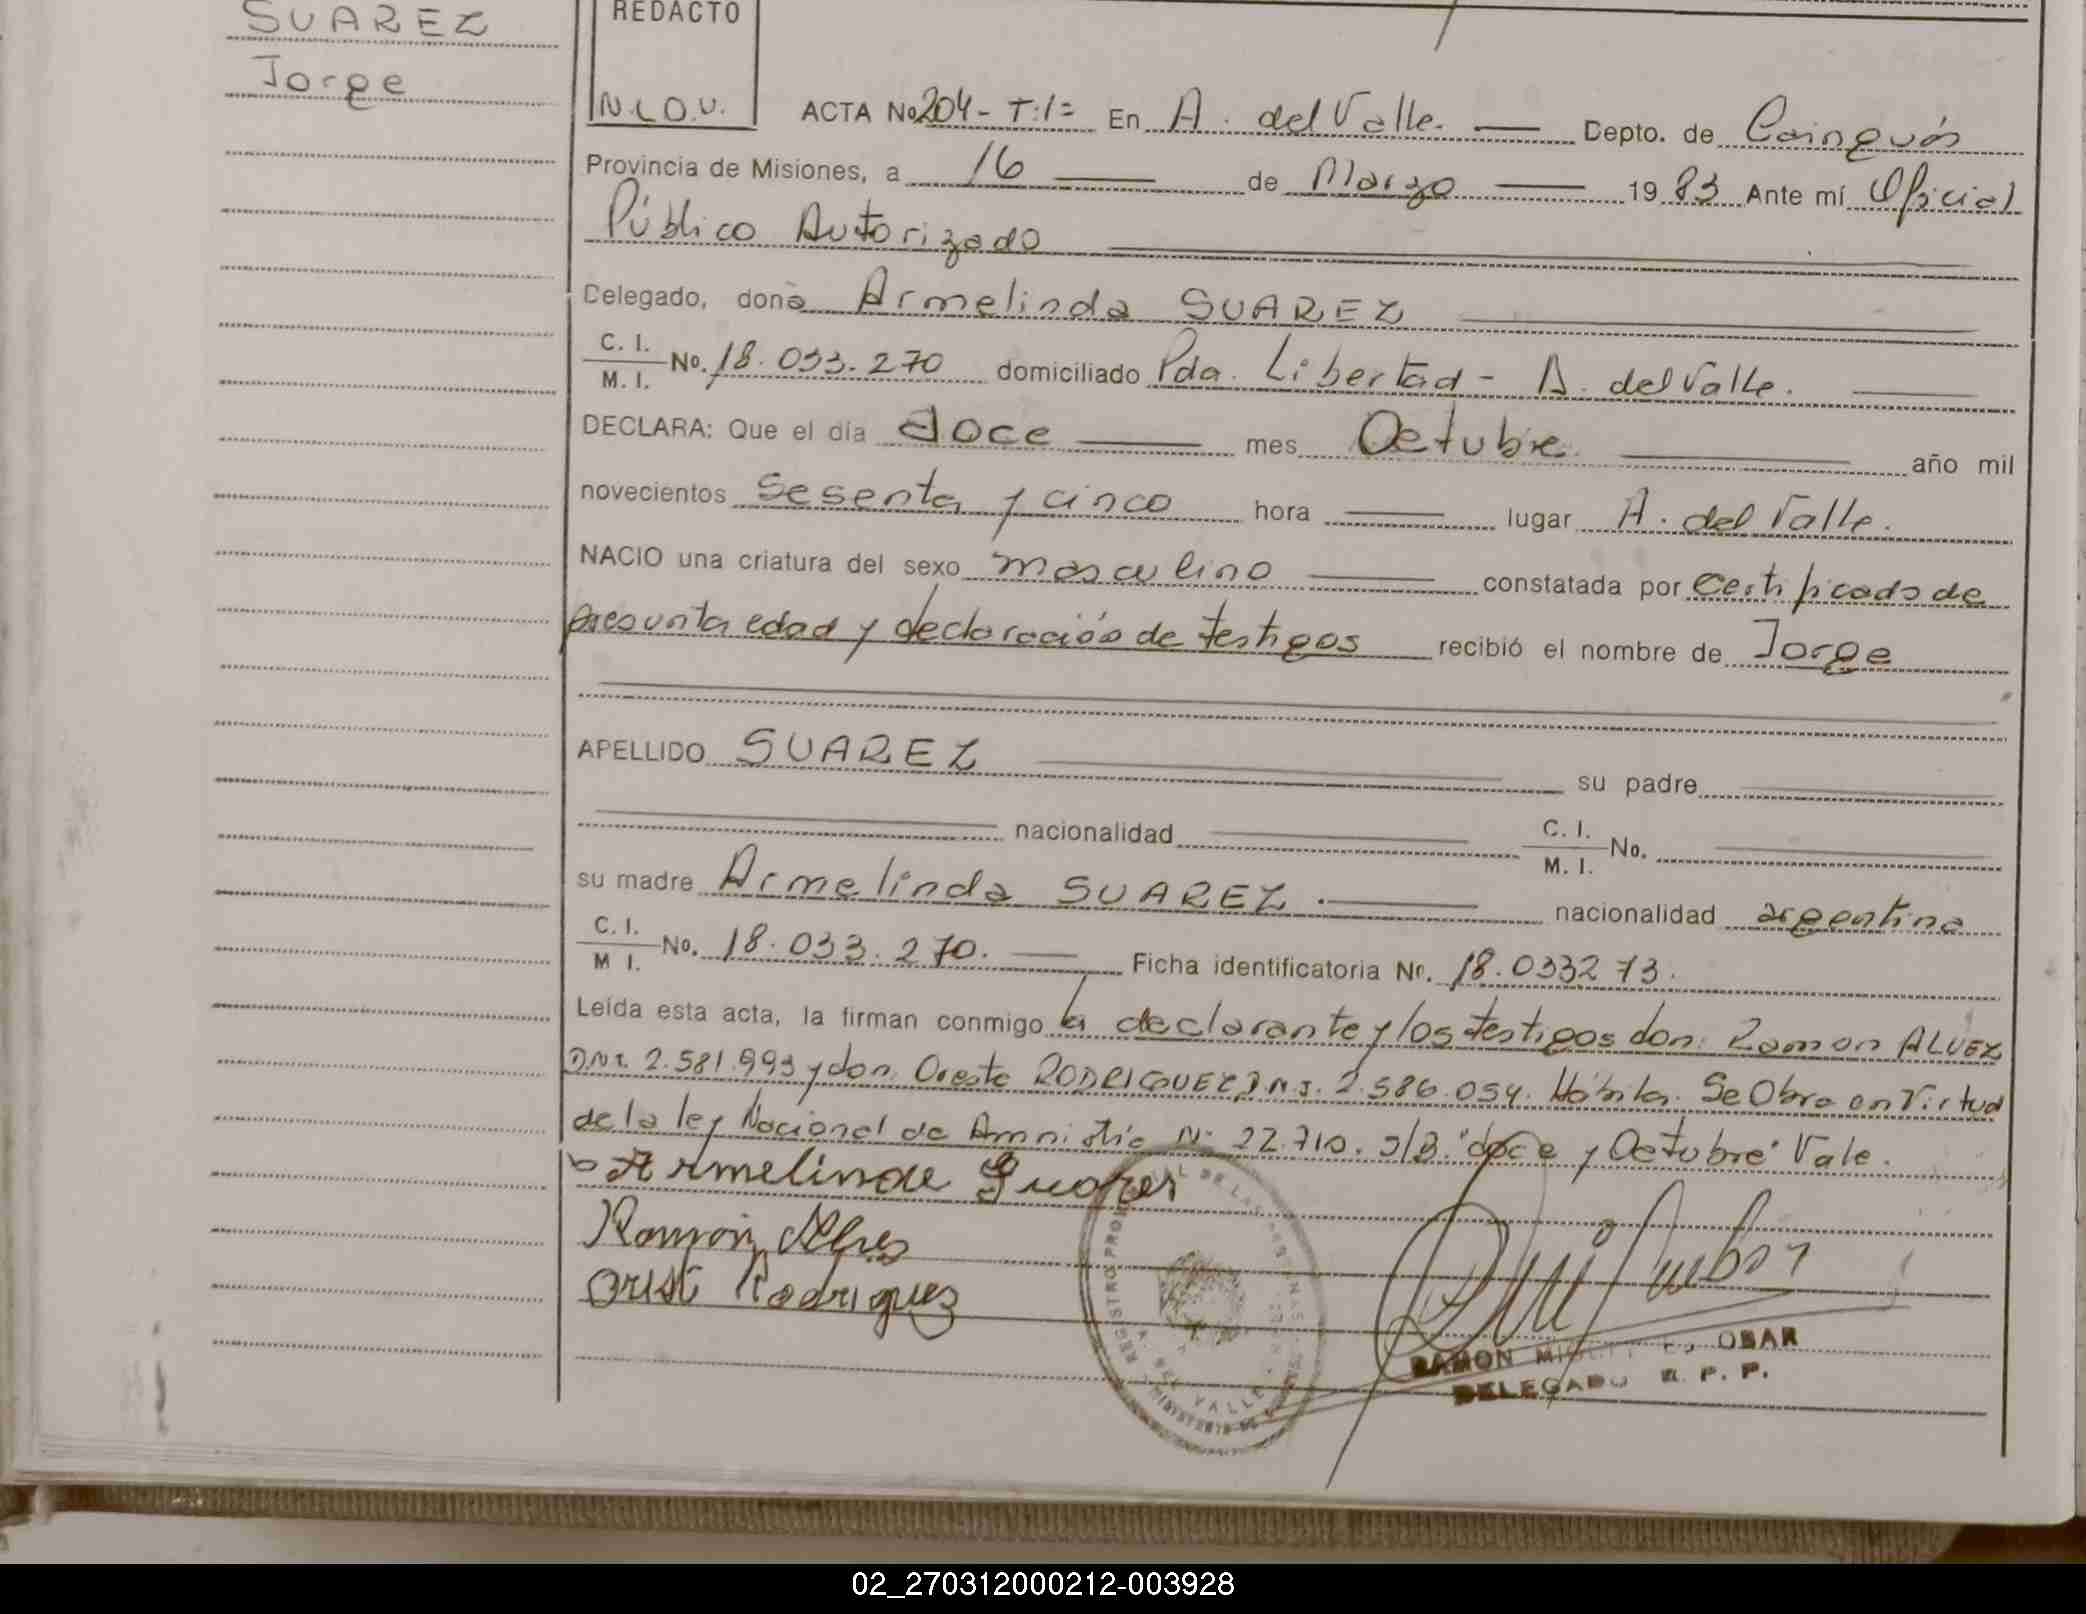 SUAREZ
Jorge
REDACTO
N.L.O.V.
ACTA No 204 - T:1= En A. del Valle. Depto. de Cainguás
Provincia de Misiones, a 16 de Marzo 1983 Ante mí Oficial
Público Autorizado
Delegado, doña Armelinda SUAREZ
C. I. M. I. No. 18.033.270 domiciliado Pda. Libertad - A. del Valle.
DECLARA: Que el día doce mes Octubre año mil
novecientos sesenta y cinco hora lugar A. del Valle.
NACIO una criatura del sexo masculino constatada por Certificado de
presunta edad y declaración de testigos recibió el nombre de Jorge
APELLIDO SUAREZ su padre
nacionalidad C. I. M. I. No.
su madre Armelinda SUAREZ. nacionalidad argentina
C. I. M I. No. 18.033.270. Ficha identificatoria Nr. 18.033273.
Leída esta acta, la firman conmigo la declarante y los testigos don: Ramon ALVEZ
DNI. 2.581.993 y don. Oreste RODRIGUEZ D.N.I. 2.586.054. Hábiles. Se Obra en Virtud
de la ley Nacional de Amnistía Nº 22.710. S/B. "doce y Octubre" Vale.
Armelinde Suares
Ramón Alves
Orist Rodriguez
REGISTRO PROVINCIAL DE LAS PERSONAS
A. DEL VALLE
RAMON OBAR
DELEGADO R. P. P.
02_270312000212-003928